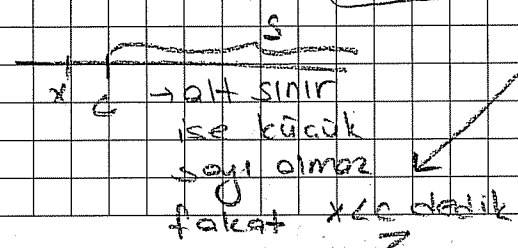 S
x c → alt sınır
ise küçük
sayı olmaz
fakat x<c dedik